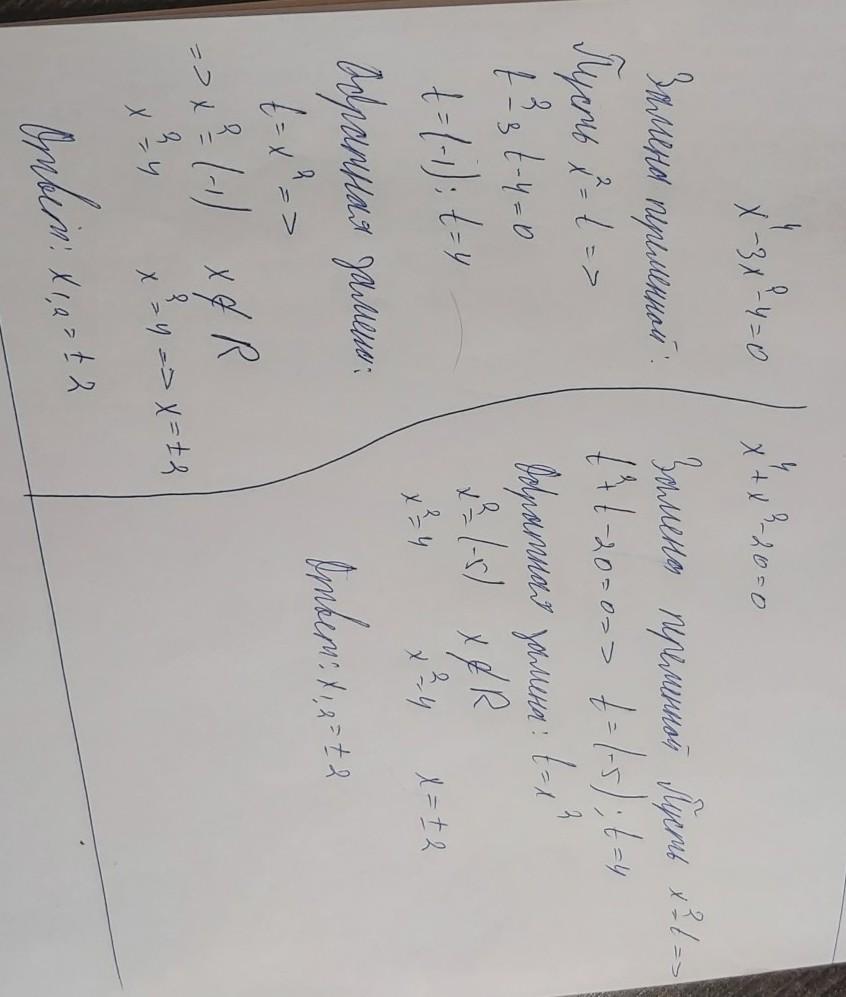 x⁴-3x²-4=0
Замена переменной:
Пусть x²=t =>
t²-3t-4=0
t=(-1); t=4
Обратная замена:
t=x² =>
=> x²=(-1) x∉R
x²=4 x²=4 => x=±2
Ответ: x1,2=±2
x⁴+x²-20=0
Замена переменной Пусть x²=t =>
t²+t-20=0 => t=(-5); t=4
Обратная замена: t=x²
x²=(-5) x∉R
x²=4 x²=4 x=±2
Ответ: x1,2=±2